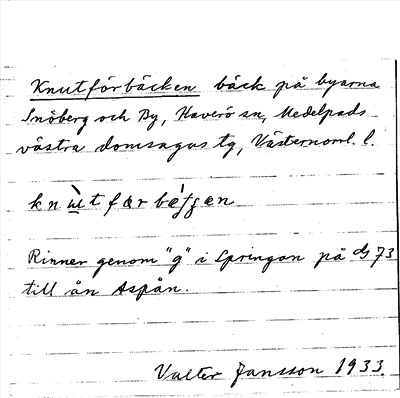 Knutförbäcken bäck på byarna
Snöberg och By, Haverö sn, Medelpads
västra domsagas tg, Västernorrl. l.
Rinner genom "g" i Springan på
till ån Aspån.
Valter Jansson 1933.